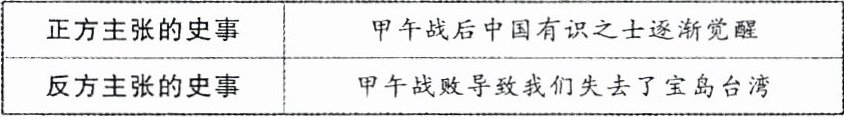 正方主张的史事 甲午战后中国有识之士逐渐觉醒
反方主张的史事 甲午战败导致我们失去了宝岛台湾